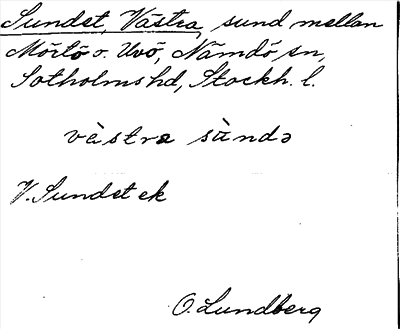 Sundet, Västra, sund mellan
Mörtö o. Uvö, Nämdö sn,
Sotholms hd, Stockh. l.
västra sùndə
V. Sundet ek
O. Lundberg